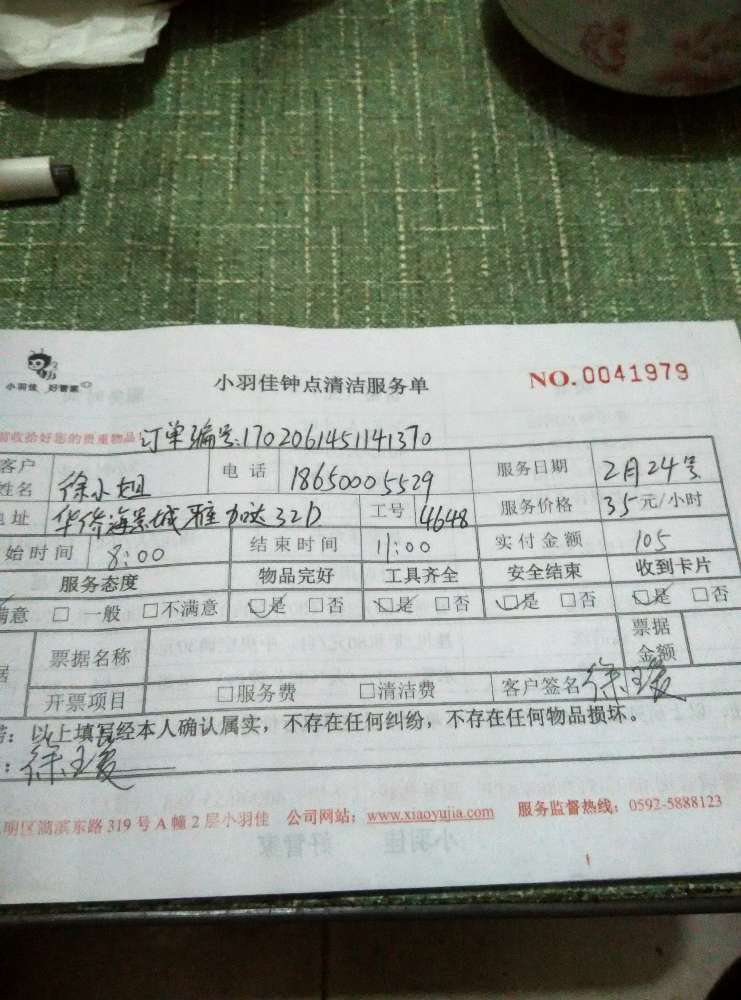 小羽佳 好管家
小羽佳钟点清洁服务单
NO.0041979
前收拾好您的贵重物品!
订单编号:1702061451141370
客户姓名 徐小姐 电话 18650005529 服务日期 2月24号
地址 华侨海景城雅加达32D 工号 4648 服务价格 35元/小时
始时间 8:00 结束时间 11:00 实付金额 105
服务态度 物品完好 工具齐全 安全结束 收到卡片
满意 □ 一般 □不满意 □是 □否 □是 □否 □是 □否 □是 □否
据 票据名称 票据金额
开票项目 □服务费 □清洁费 客户签名 徐玉爱
:以上填写经本人确认属实,不存在任何纠纷,不存在任何物品损坏。
:徐玉爱
明区湖滨东路 319 号 A 幢 2 层小羽佳 公司网站:www.xiaoyujia.com 服务监督热线:0592-5888123